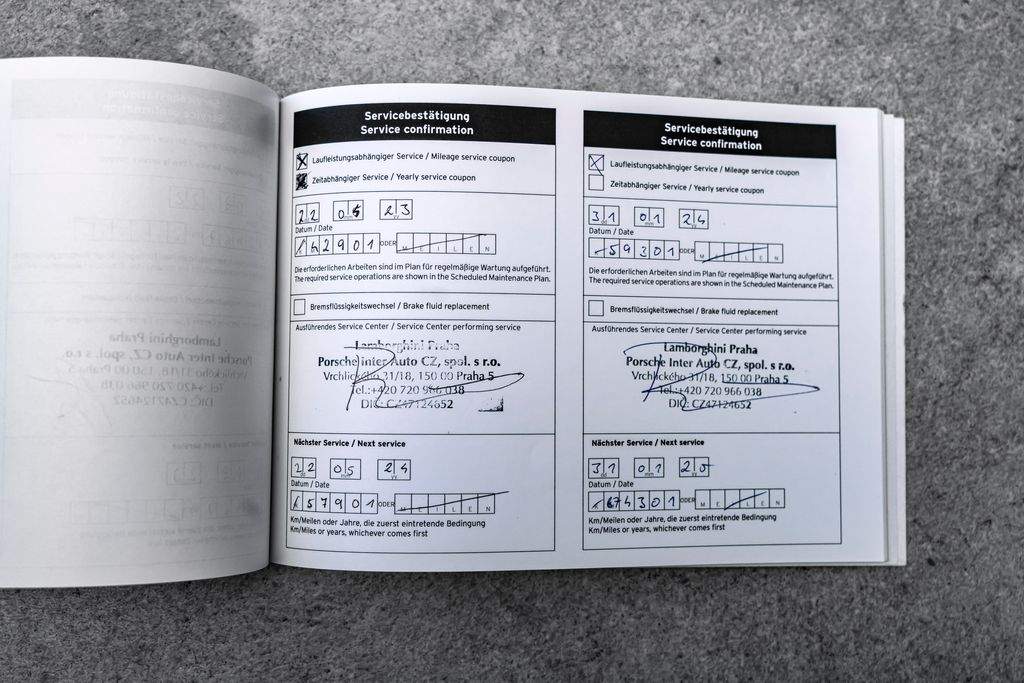 Servicebestätigung
Service confirmation
Laufleistungsabhängiger Service / Mileage service coupon
Zeitabhängiger Service / Yearly service coupon
22 05 23
dd mm yy
Datum / Date
42901 ODER MEILEN
Die erforderlichen Arbeiten sind im Plan für regelmäßige Wartung aufgeführt.
The required service operations are shown in the Scheduled Maintenance Plan.
Bremsflüssigkeitswechsel / Brake fluid replacement
Ausführendes Service Center / Service Center performing service
Lamborghini Praha
Porsche Inter Auto CZ, spol. s r.o.
Vrchlického 31/18, 150 00 Praha 5
Tel.:+420 720 966 038
DIČ: CZ47124652
Nächster Service / Next service
22 05 24
dd mm yy
Datum / Date
57901 ODER MEILEN
Km/Meilen oder Jahre, die zuerst eintretende Bedingung
Km/Miles or years, whichever comes first
Servicebestätigung
Service confirmation
Laufleistungsabhängiger Service / Mileage service coupon
Zeitabhängiger Service / Yearly service coupon
31 01 24
dd mm yy
Datum / Date
59301 ODER MEILEN
Die erforderlichen Arbeiten sind im Plan für regelmäßige Wartung aufgeführt.
The required service operations are shown in the Scheduled Maintenance Plan.
Bremsflüssigkeitswechsel / Brake fluid replacement
Ausführendes Service Center / Service Center performing service
Lamborghini Praha
Porsche Inter Auto CZ, spol. s r.o.
Vrchlického 31/18, 150 00 Praha 5
Tel.:+420 720 966 038
DIČ: CZ47124652
Nächster Service / Next service
31 01 25
dd mm yy
Datum / Date
74301 ODER MEILEN
Km/Meilen oder Jahre, die zuerst eintretende Bedingung
Km/Miles or years, whichever comes first